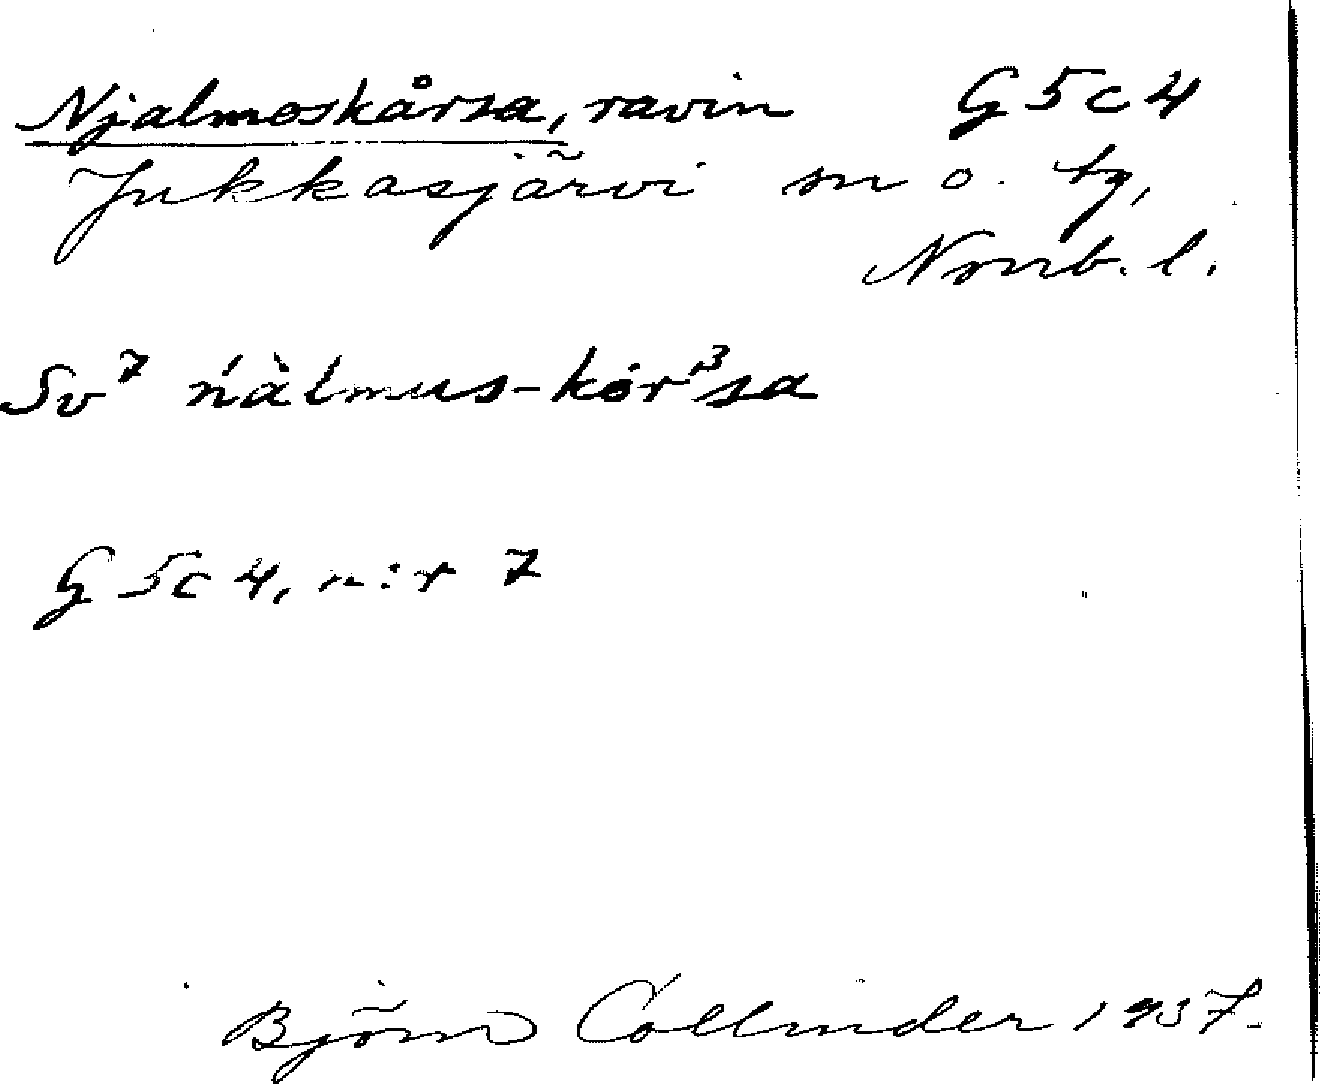 Njalmoskårsa, ravin G5c4
Jukkasjärvi sn o. tg,
Nrrub. l.
Sv⁷ ńàlmus-kårˈ³sa
G5c4, n:r 7
Björn Collinder 1937.